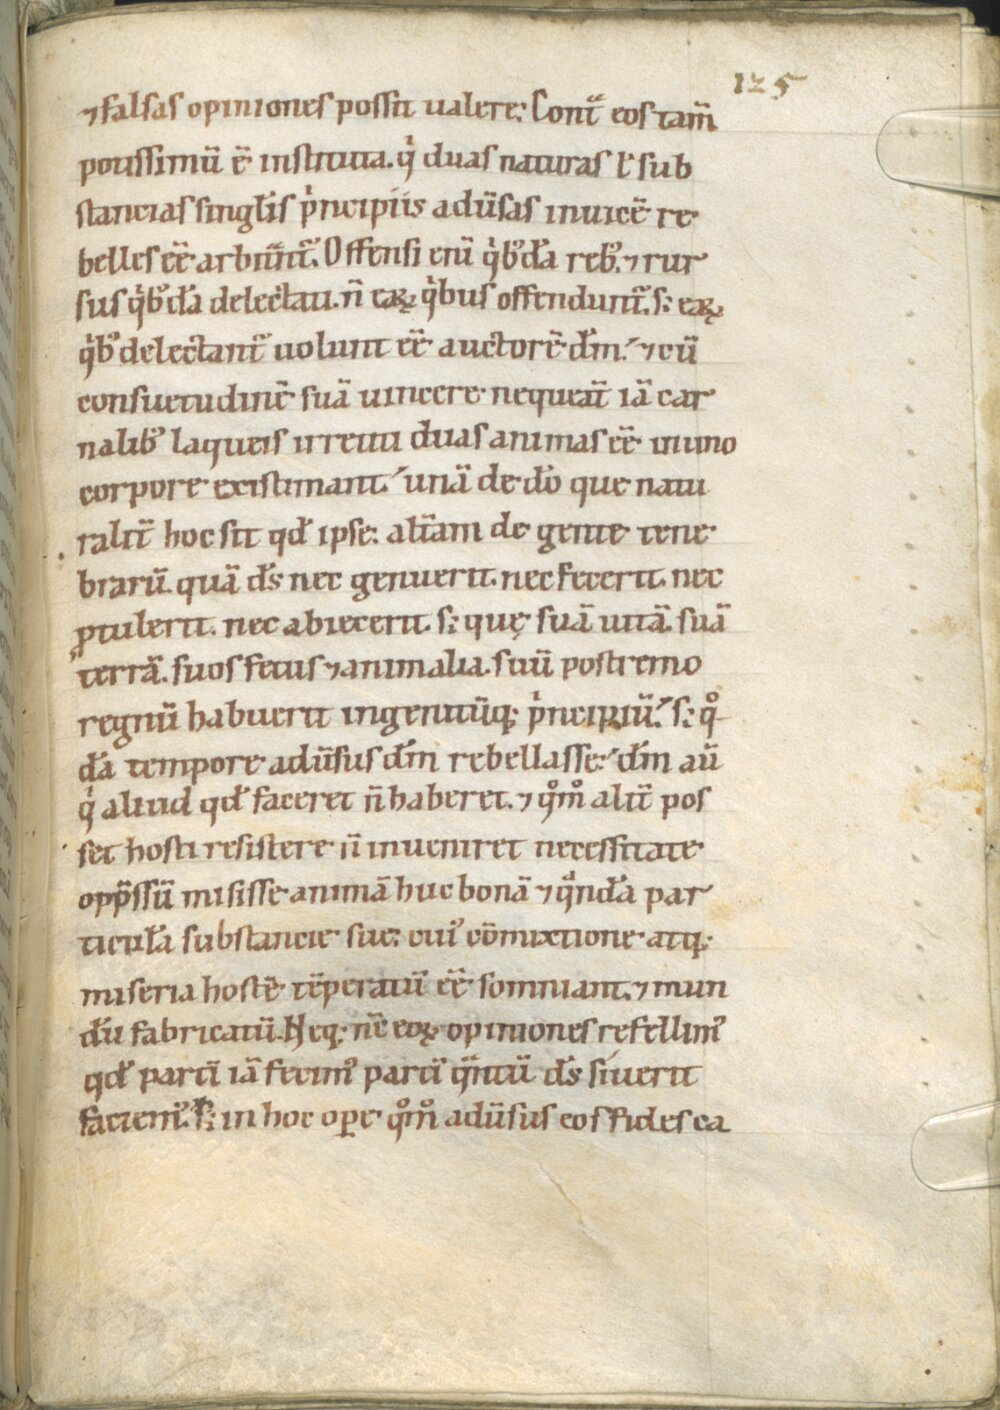 125
⁊ falsas opiniones possit ualere; Contᷓ eos tam̄
potissimū ē instituta. qⁱ duas naturas ł sub
stancias singłis pⁱncipiis adūsas inuicē re
belles eē arbitⁿt᷑. Offensi enī qⁱb᷒dā reb᷒. ⁊ rur
sus qⁱb᷒dā delectati. n̄ eaꝝ qⁱbus offendunt᷑. s; eaꝝ
qⁱb᷒ delectant᷑ uolunt eē auctorē dm̄. ⁊ cū
consuetudinē suā uincere nequeāt iā car
nalib᷒ laqueis irretiti duas animas eē in uno
corpore existimant. unā de dō que natu
ralit̄ hoc sit qđ ipse. alt̄am de gente tene
brarū. quā ds̄ nec genuerit. nec fecerit. nec
ꝓtulerit. nec abiecerit. s; quę suā uitā. suā
terrā. suos fetus ⁊ animalia. suū postremo
regnū habuerit ingenitūq; pⁱncipiū. s; qᵒ
dā tempore adūsus dm̄ rebellasse. dm̄ aū
qⁱ aliud qđ faceret n̄ haberet. ⁊ qᵒmᵒ alit̄ pos
set hosti resistere n̄ inueniret necessitate
opp̄ssū misisse animā huc bonā ⁊ qᷓndā par
ticulā substancie sue. cui᷒ cōmixtione atq;
miseria hostē tēperatū eē somniant. ⁊ mun
dū fabricatū. Neq; nc̄ eoꝝ opiniones refellim᷒
qđ partī iā fecim᷒ partī qᷓntū ds̄ siuerit
faciem᷒. s; in hoc oꝑe qᵒmᵒ adūsus eos fides ca